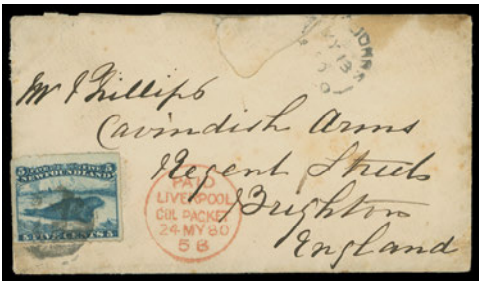 ST JOHN'S
MY 13
Mr J Phillips
Cavindish Arms
Regent Streets
Brighton
England
5 FIVE 5
NEWFOUNDLAND
5 FIVE CENTS 5
PAID
LIVERPOOL
COL. PACKET
24 MY 80
5 B